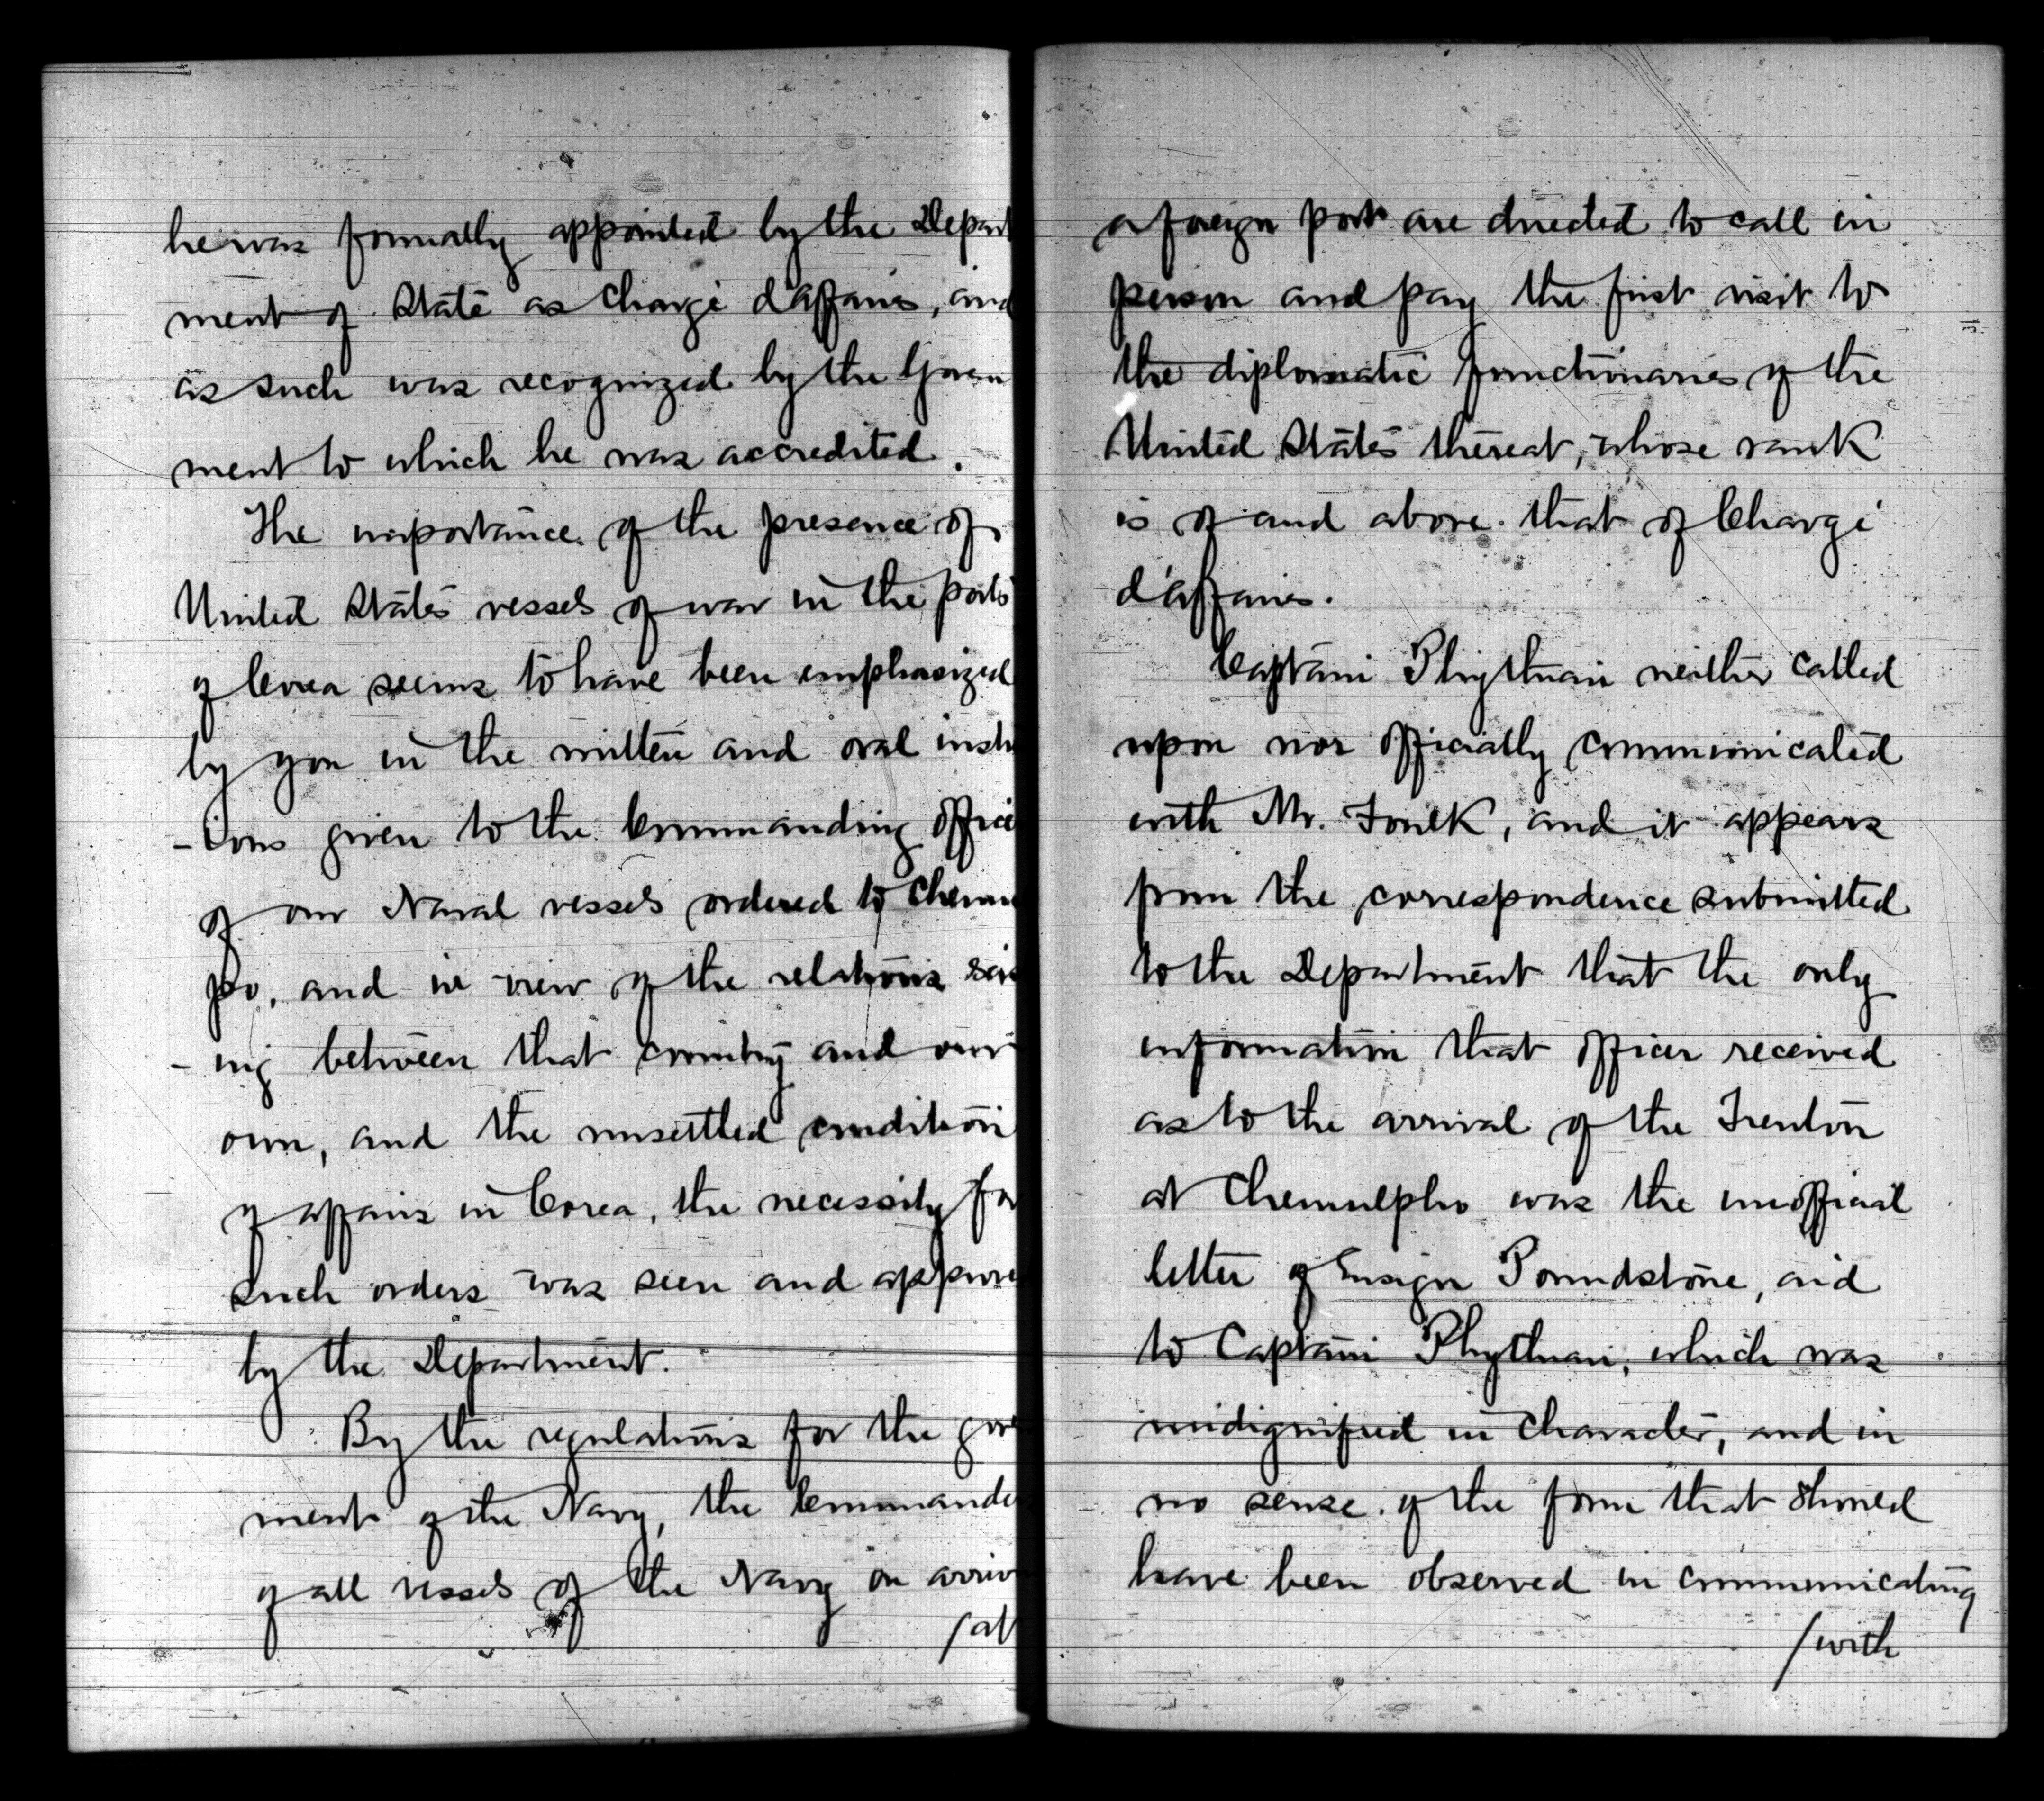 he was formally appointed by the Depart
ment of State as Chargé d'affaires, and
as such was recognized by the Govern
ment to which he was accredited.
The importance of the presence of
United States vessels of war in the ports
of Corea seems to have been emphasized
by you in the written and oral instr
-ions given to the Commanding office
of our Naval vessels ordered to Chemu
po, and in view of the relations
-ing between that country and our
own, and the unsettled condition
of affairs in Corea, the necessity for
such orders was seen and approve
by the Department.
By the regulations for the gov
ment of the Navy, the Commande
of all vessels of the Navy on arriv
/at
a foreign port are directed to call in
person and pay the first visit to
the diplomatic functionaries of the
United States thereat, whose rank
is of and above that of Chargé
d'affaires.
Captain Phythian neither called
upon nor officially communicated
with Mr. Foulk, and it appears
from the correspondence submitted
to the Department that the only
information that officer received
as to the arrival of the Trenton
at Chemulpho was the unofficial
letter of Ensign Poundstone, aid
to Captain Phythian, which was
undignified in character, and in
no sense of the form that should
have been observed in communicating
/with